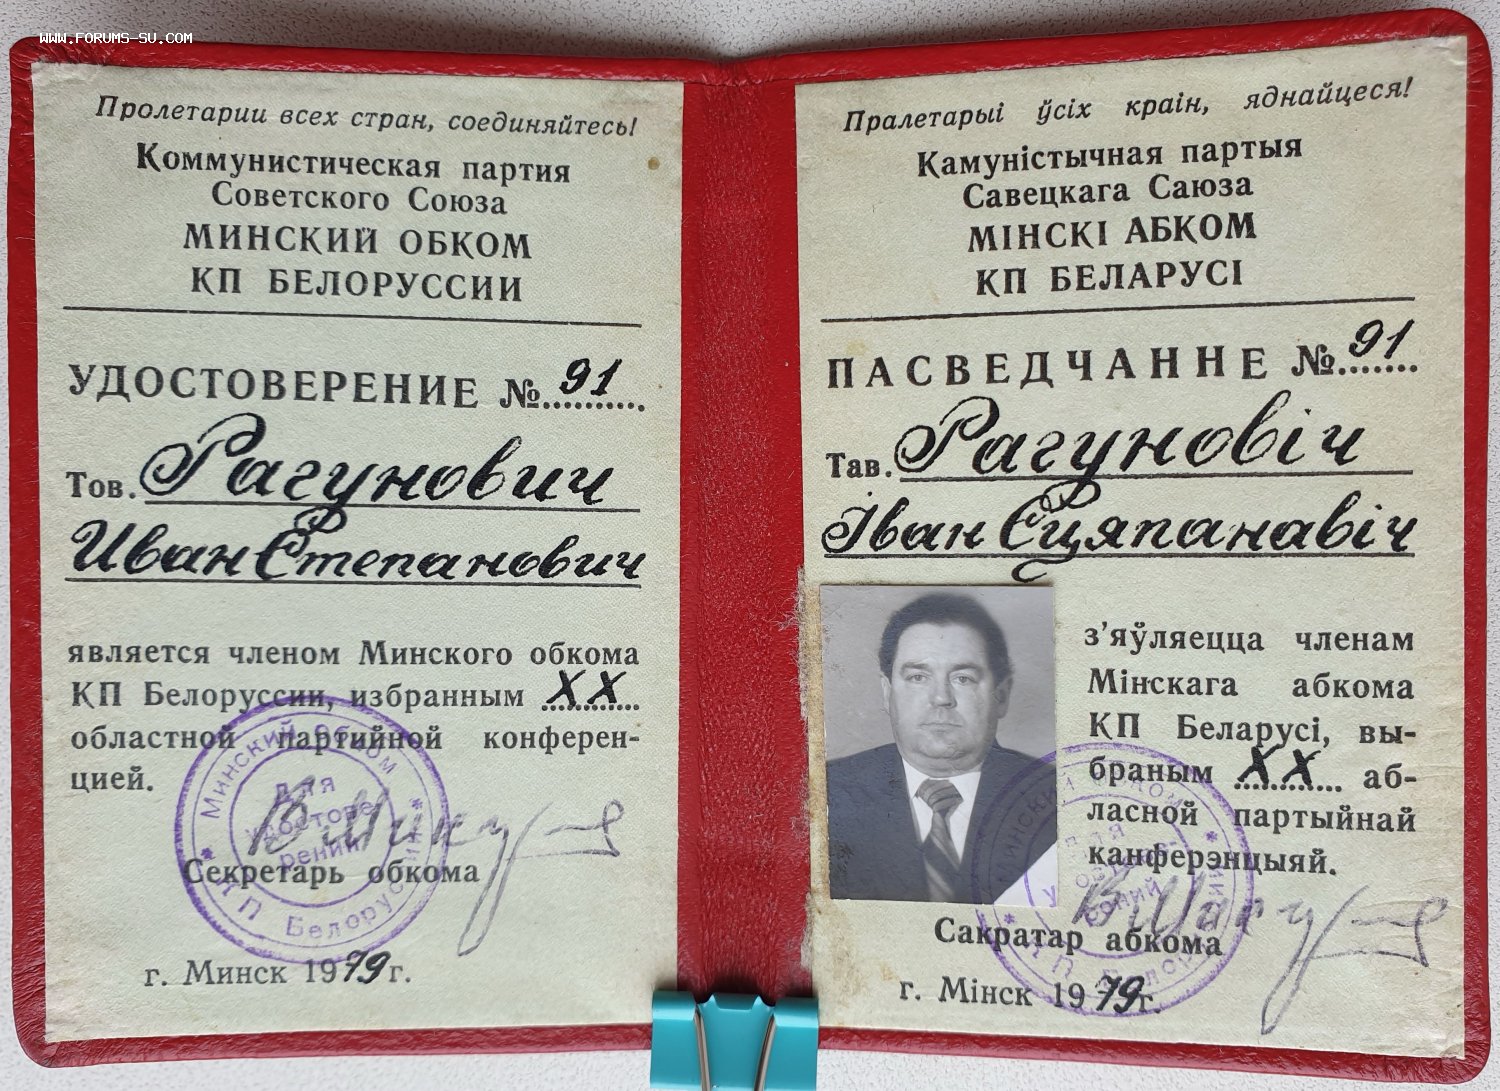 www.forums-su.com
Пролетарии всех стран, соединяйтесь!
Коммунистическая партия
Советского Союза
МИНСКИЙ ОБКОМ
КП БЕЛОРУССИИ
УДОСТОВЕРЕНИЕ № 91
Тов. Рагунович
Иван Степанович
является членом Минского обкома
КП Белоруссии, избранным XX
областной партийной конферен-
цией.
Минский Обком
КП Белоруссии
для
удостове
рений
Секретарь обкома
г. Минск 1979 г.
Пралетарыі ўсіх краін, яднайцеся!
Камуністычная партыя
Савецкага Саюза
МІНСКІ АБКОМ
КП БЕЛАРУСІ
ПАСВЕДЧАННЕ № 91
Тав. Рагуновіч
Іван Сцяпанавіч
з'яўляецца членам
Мінскага абкома
КП Беларусі, вы-
браным XX аб-
ласной партыйнай
канферэнцыяй.
Минский Обком
Сакратар абкома
г. Мінск 1979 г.